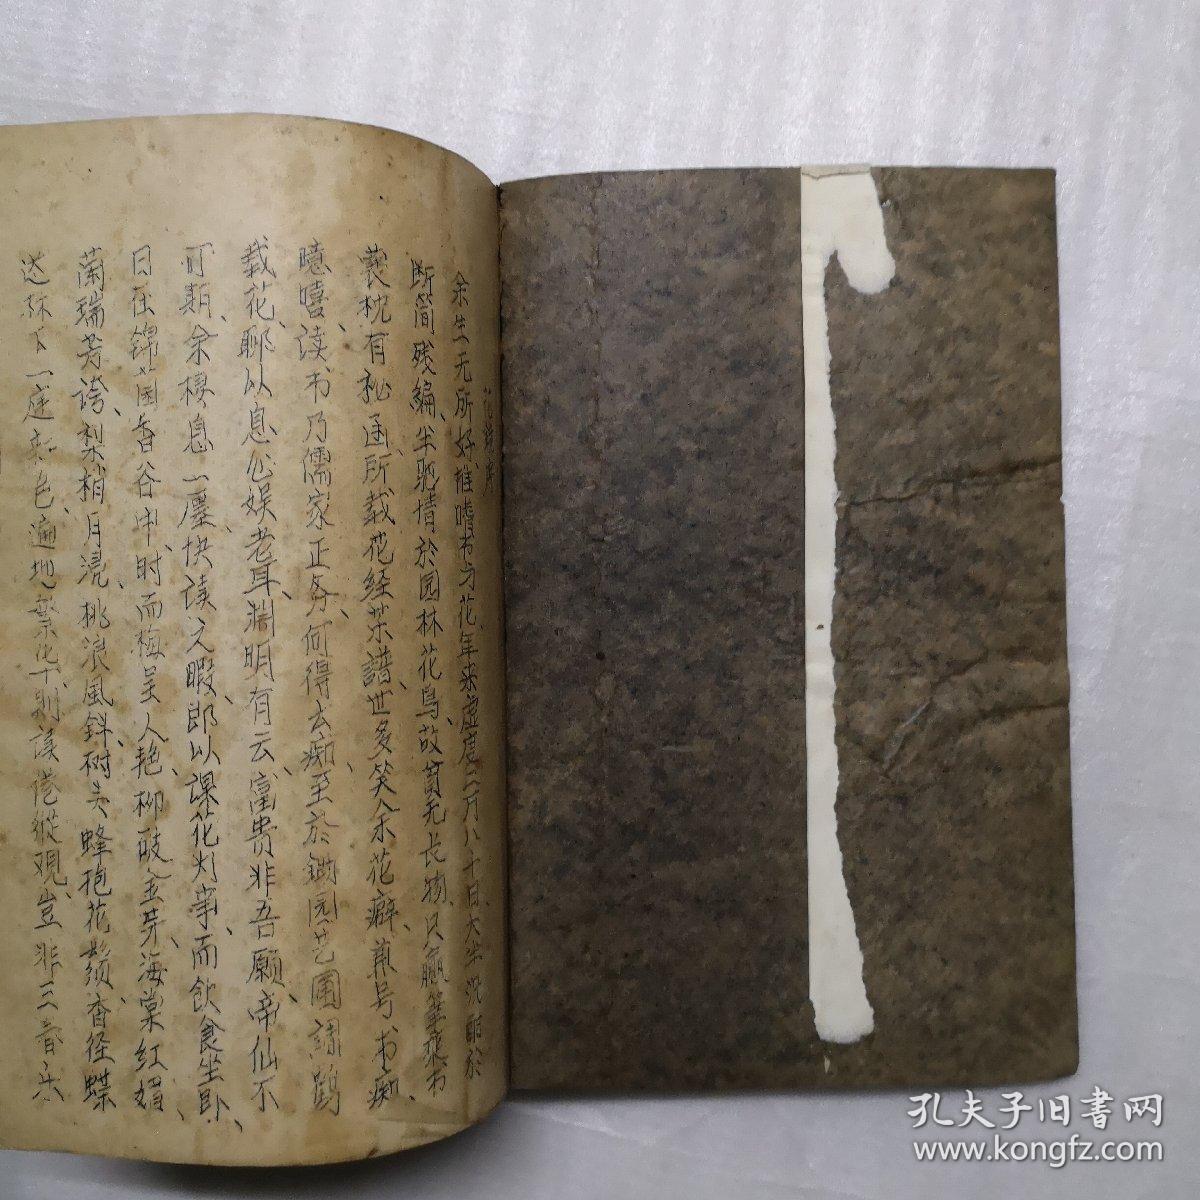 余生无所好惟嗜书与花年来虚度二万八千日大半沉酣於
断简残编、半驰情於园林花鳥、故貧无长物、只贏筆乘书
囊枕有秘函、所载花经茶譜、世多笑余花癖、兼号书痴、
噫嘻、读书乃儒家正务、何得云痴、至於鋤园艺圃調鶴
栽花、聊以息心娱老耳、淵明有云、富贵非吾願、帝仙不
可期、余棲息一廛、快读之暇、即以課花为事、而飲食坐卧、
日在錦茵香谷中、时而梅呈人艳、柳破金芽、海棠红媚、
蘭瑞芳誇、梨梢月浸、桃浪風斜、树头蜂抱花鬚、香径蝶
迷林下、一庭新色、遍地繁华、则读倦縱观、岂非三春乐
孔夫子旧書网
www.kongfz.com